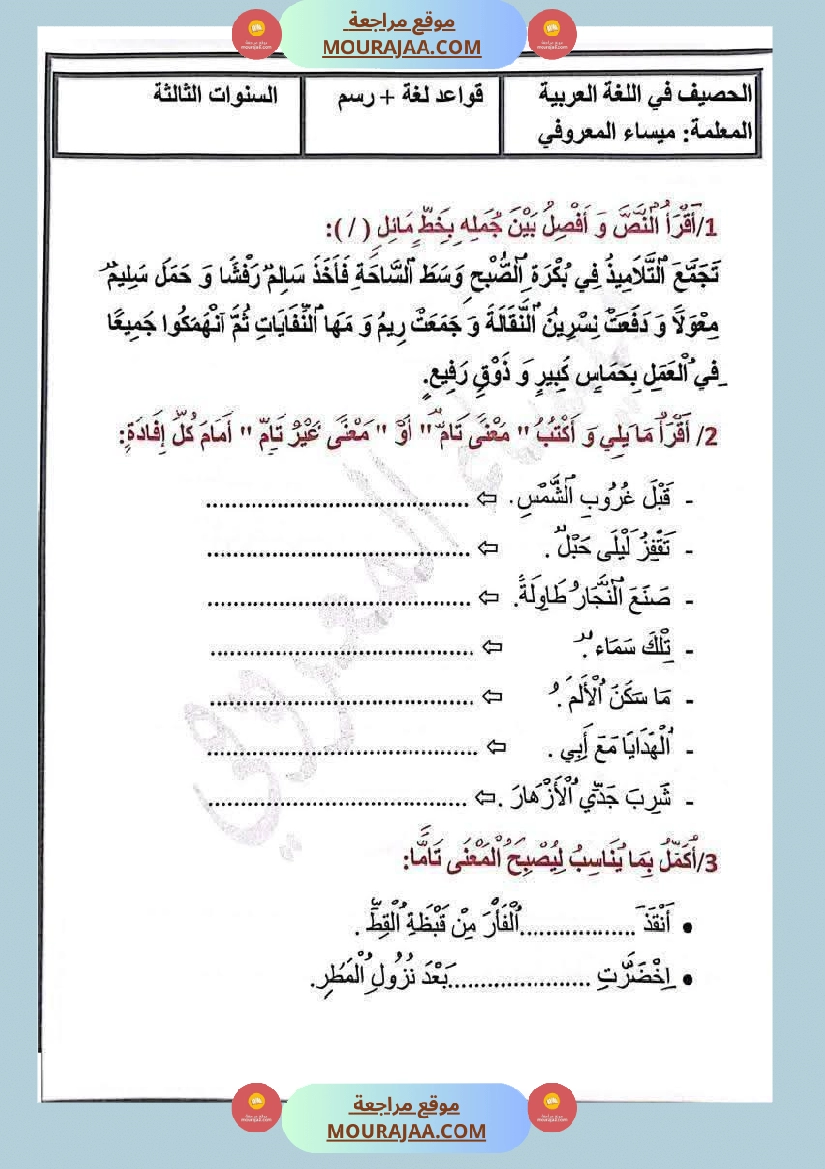 موقع مراجعة
MOURAJAA.COM
الحصيف في اللغة العربية
المعلمة: ميساء المعروفي
قواعد لغة + رسم
السنوات الثالثة
1/أَقْرَأُ ٱلنَّصَّ وَ أَفْصِلُ بَيْنَ جُمَلِهِ بِخَطٍّ مَائِلٍ ( / ):
تَجَمَّعَ ٱلتَّلَامِيذُ فِي بُكْرَةِ ٱلصُّبْحِ وَسَطَ ٱلسَّاحَةِ فَأَخَذَ سَالِمٌ رَفْشًا وَ حَمَلَ سَلِيمٌ
مِعْوَلًا وَ دَفَعَتْ نِسْرِينُ ٱلنَّقَالَةَ وَ جَمَعَتْ رِيمُ وَ مَهَا ٱلنِّفَايَاتِ ثُمَّ ٱنْهَمَكُوا جَمِيعًا
فِي ٱلْعَمَلِ بِحَمَاسٍ كَبِيرٍ وَ ذَوْقٍ رَفِيعٍ.
2/ أَقْرَأُ مَا يَلِي وَ أَكْتُبُ " مَعْنًى تَامٌّ " أَوْ " مَعْنًى غَيْرُ تَامٍّ " أَمَامَ كُلِّ إِفَادَةٍ:
- قَبْلَ غُرُوبِ ٱلشَّمْسِ. ⇦ ............................................
- تَقْفِزُ لَيْلَى حَبْلٌ . ⇦ ............................................
- صَنَعَ ٱلنَّجَارُ طَاوِلَةً. ⇦ ............................................
- تِلْكَ سَمَاءٌ . ⇦ ............................................
- مَا سَكَنَ ٱلْأَلَمُ . ⇦ ............................................
- ٱلْهَدَايَا مَعَ أَبِي . ⇦ ............................................
- شَرِبَ جَدِّي ٱلْأَزْهَارَ . ⇦ ............................................
3/أُكَمِّلُ بِمَا يُنَاسِبُ لِيُصْبِحَ ٱلْمَعْنَى تَامًّا:
• أَنْقَذَ ...................ٱلْفَأْرَ مِنْ قَبْظَةِ ٱلْقِطِّ .
• اِخْضَرَّتِ .......................بَعْدَ نُزُولِ ٱلْمَطَرِ.
موقع مراجعة
MOURAJAA.COM